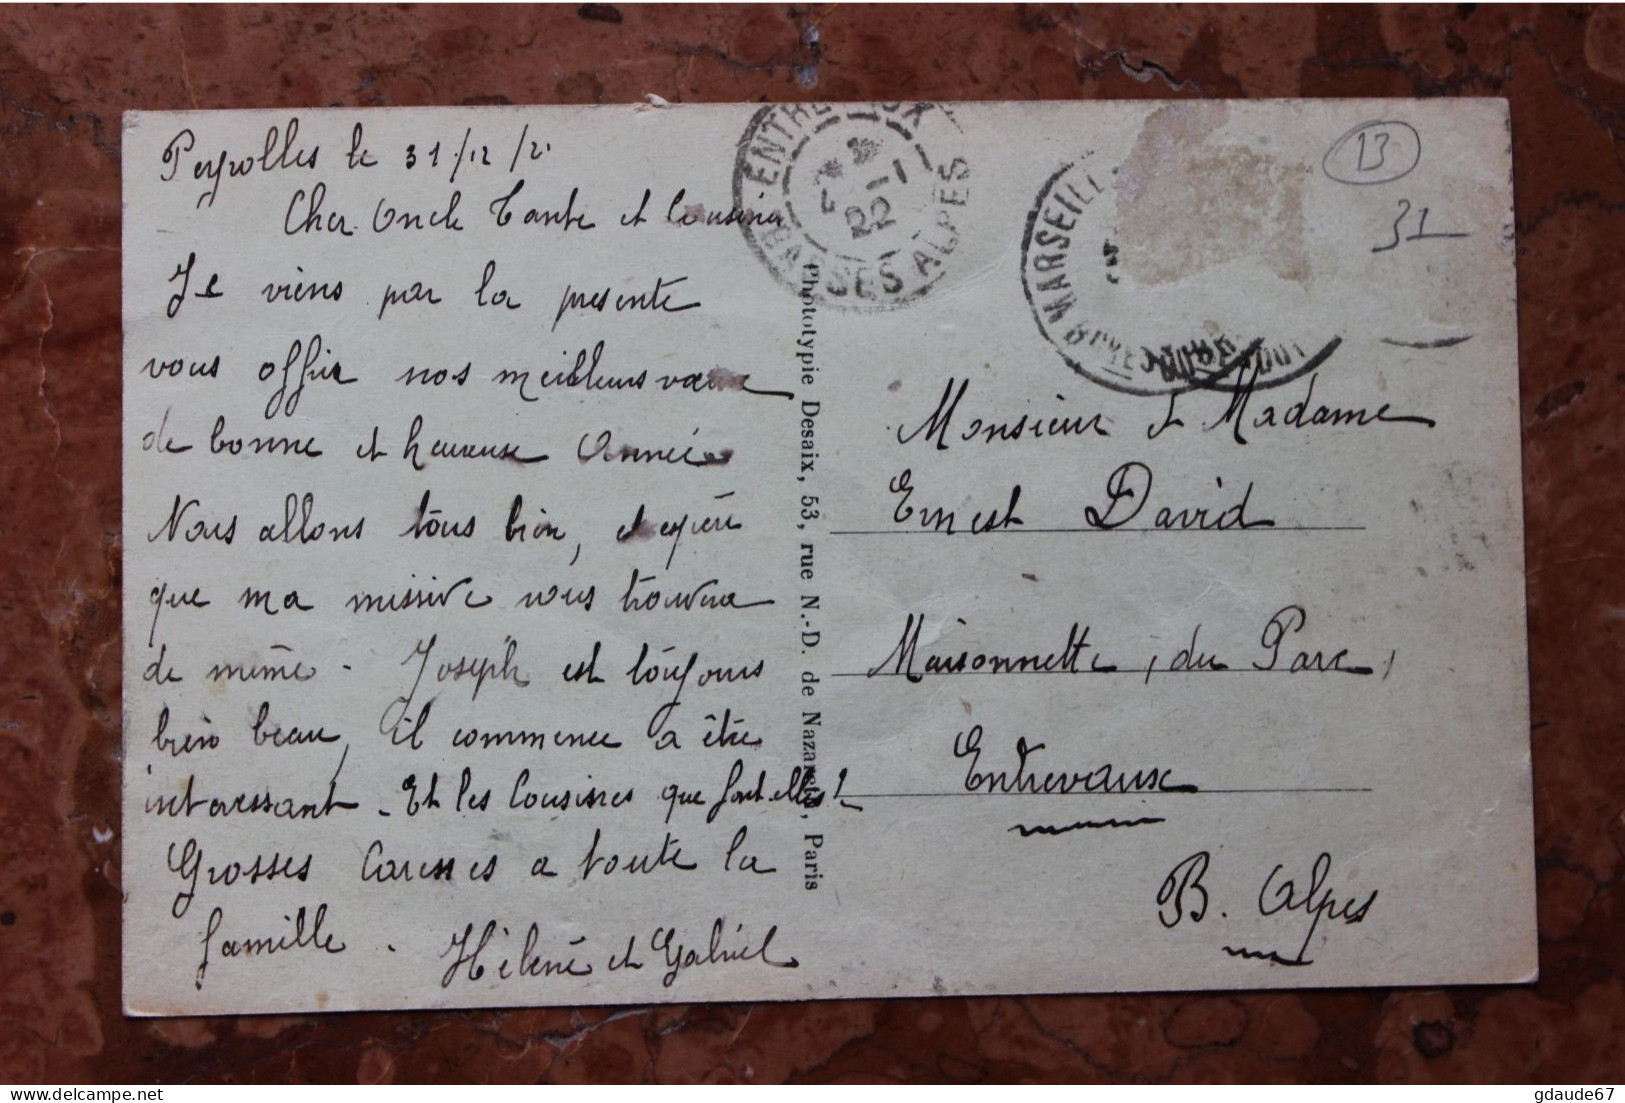 Peyrolles le 31/12/21
Cher Oncle Tante et Cousines
Je viens par la presente
vous offrir nos meilleurs vœux
de bonne et heureuse Année
Nous allons tous bien, et espère
que ma missive vous trouvera
de même - Joseph est toujours
bien beau, il commence a être
interessant - Et les Cousines que font elles?
Grosses Caresses a toute la
famille - Hélène et Gabriel
ENTREVAUX
BASSES ALPES
22
Phototypie Desaix, 53, rue N.-D. de Nazareth, Paris
MARSEILLE
13
31
Monsieur et Madame
Ernest David
Maisonnette, du Parc,
Entrevaux
B. Alpes
delcampe.net
gdaude67